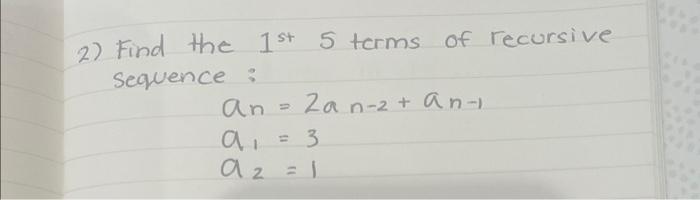 2) Find the 1st 5 terms of recursive
sequence :
an = 2a n-2 + a n-1
a1 = 3
a2 = 1